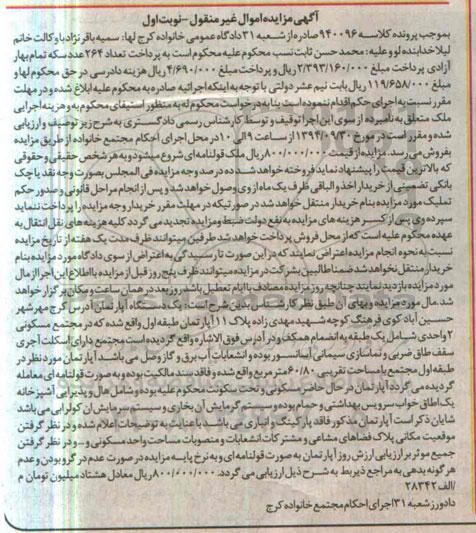 آگهی مزایده اموال غیر منقول - نوبت اول
بموجب پرونده کلاسه ۹۴۰۰۹۶ صادره از شعبه ۳۱ دادگاه عمومی خانواده کرج لها: سمیه باقرنژاد با وکالت خانم
لیلا خداینده لو و علیه: محمد حسن ثابت نسب محکوم علیه محکوم است به پرداخت تعداد ۲۶۴ عدد سکه تمام بهار
آزادی پرداخت مبلغ ۲/۳۹۳/۱۶۰/۰۰۰ ریال و پرداخت مبلغ ۴/۶۹۰/۰۰۰ ریال هزینه دادرسی در حق محکوم لها و
مبلغ ۱۱۹/۶۵۸/۰۰۰ ریال بابت نیم عشر دولتی با توجه به اینکه اجرائیه صادره به محکوم علیه ابلاغ شده و در مهلت
مقرر نسبت به اجرای حکم اقدام ننموده است بنا به درخواست محکوم له به منظور استیفای محکوم به و هزینه اجرایی
ملک متعلق به نامبرده از سوی این اجرا توقیف و توسط کارشناس رسمی دادگستری به شرح زیر توصیف و ارزیابی
شده و مقرر است در مورخ ۱۳۹۴/۰۹/۳۰ از ساعت ۹ الی ۱۰ در محل اجرای احکام مجتمع خانواده از طریق مزایده
بفروش می رسد. مزایده از قیمت ۸۰۰/۰۰۰/۰۰۰ ریال ملک قولنامه ای شروع میشود و به هر شخص حقیقی و حقوقی
که بالاترین قیمت را پیشنهاد نماید فروخته خواهد شد ده درصد وجه مزایده فی المجلس بصورت وجه نقد یا چک
بانکی تضمینی از خریدار اخذ و الباقی ظرف یک ماه از وی وصول خواهد شد و پس از انجام مراحل قانونی و صدور حکم
تملیک مورد مزایده بنام خریدار منتقل خواهد شد در صورتیکه در مهلت مقرر خریدار وجه مزایده را پرداخت ننماید
سپرده وی پس از کسر هزینه های مزایده به نفع دولت ضبط و مزایده تجدید می گردد کلیه هزینه های نقل انتقال به
عهده محکوم علیه است که از محل فروش پرداخت خواهد شد طرفین میتوانند ظرف مدت یک هفته از تاریخ مزایده
نسبت به نحوه انجام مزایده اعتراض نمایند که در این صورت تا رسیدگی به اعتراض از سوی دادگاه مورد مزایده بنام
خریدار منتقل نخواهد شد ضمنا طالبین بشرکت در مزایده میتوانند ظرف پنج روز قبل از مزایده با اطلاع این اجرا از مال
مورد مزایده بازدید نمایند چنانچه روز مزایده مصادف با ایام تعطیل باشد روز بعد در همان ساعت و مکان برگزار خواهد
شد. مال مورد مزایده و بهای آن طبق نظر کارشناس بدین شرح است: یک دستگاه آپارتمان آدرس کرج مهرشهر
حسین آباد کوی فرهنگ کوچه شهید مهدی زاده پلاک ۱۱ آپارتمان طبقه اول واقع شده که در مجتمع مسکونی
۲ واحدی شامل یک طبقه به انضمام همکف و در آدرس فوق الاشاره واقع گردیده است مجتمع دارای اسکلت آجری
سقف طاق ضربی و نماسازی سیمانی آسانسور بوده و انشعابات آب برق و گاز وصل می باشد آپارتمان مورد نظر در
طبقه اول مجتمع با مساحت تقریبی ۶۰/۸۰ متر مربع واقع شده و فاقد سند مالکیت بوده و به صورت قولنامه ای معامله
گردیده می گردد آپارتمان در حال حاضر مسکونی و تحت سکونت محکوم علیه بوده و شامل هال و پذیرایی آشپزخانه
یک اطاق خواب سرویس بهداشتی و حمام بوده و سیستم گرمایش آن بخاری و سیستم سرمایش آن کولر آبی می باشد
شایان ذکر است آپارتمان مذکور فاقد پارکینگ و انباری می باشد با عنایت به توضیحات اعلام شده و در نظر گرفتن
موقعیت مکانی پلاک فضاهای مشاعی و مشترکات انشعابات و منصوبات مساحت واحد مسکونی و... و در نظر گرفتن
جمیع موثر بر ارزیابی ارزش روز آپارتمان به صورت قولنامه ای و به نرخ پایه مزایده در صورت عدم در گرو بودن و عدم
هرگونه بدهی به مراجع ذیربط به شرح ذیل ارزیابی می گردد. ۸۰۰/۰۰۰/۰۰۰ ریال معادل هشتاد میلیون تومان م
/الف ۲۸۳۴۲
دادورز شعبه ۳۱ اجرای احکام مجتمع خانواده کرج